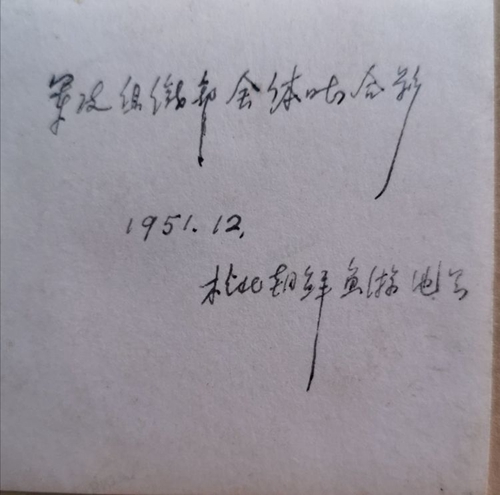 军政组织部全体同合影
1951.12.
于北朝鲜鱼游池